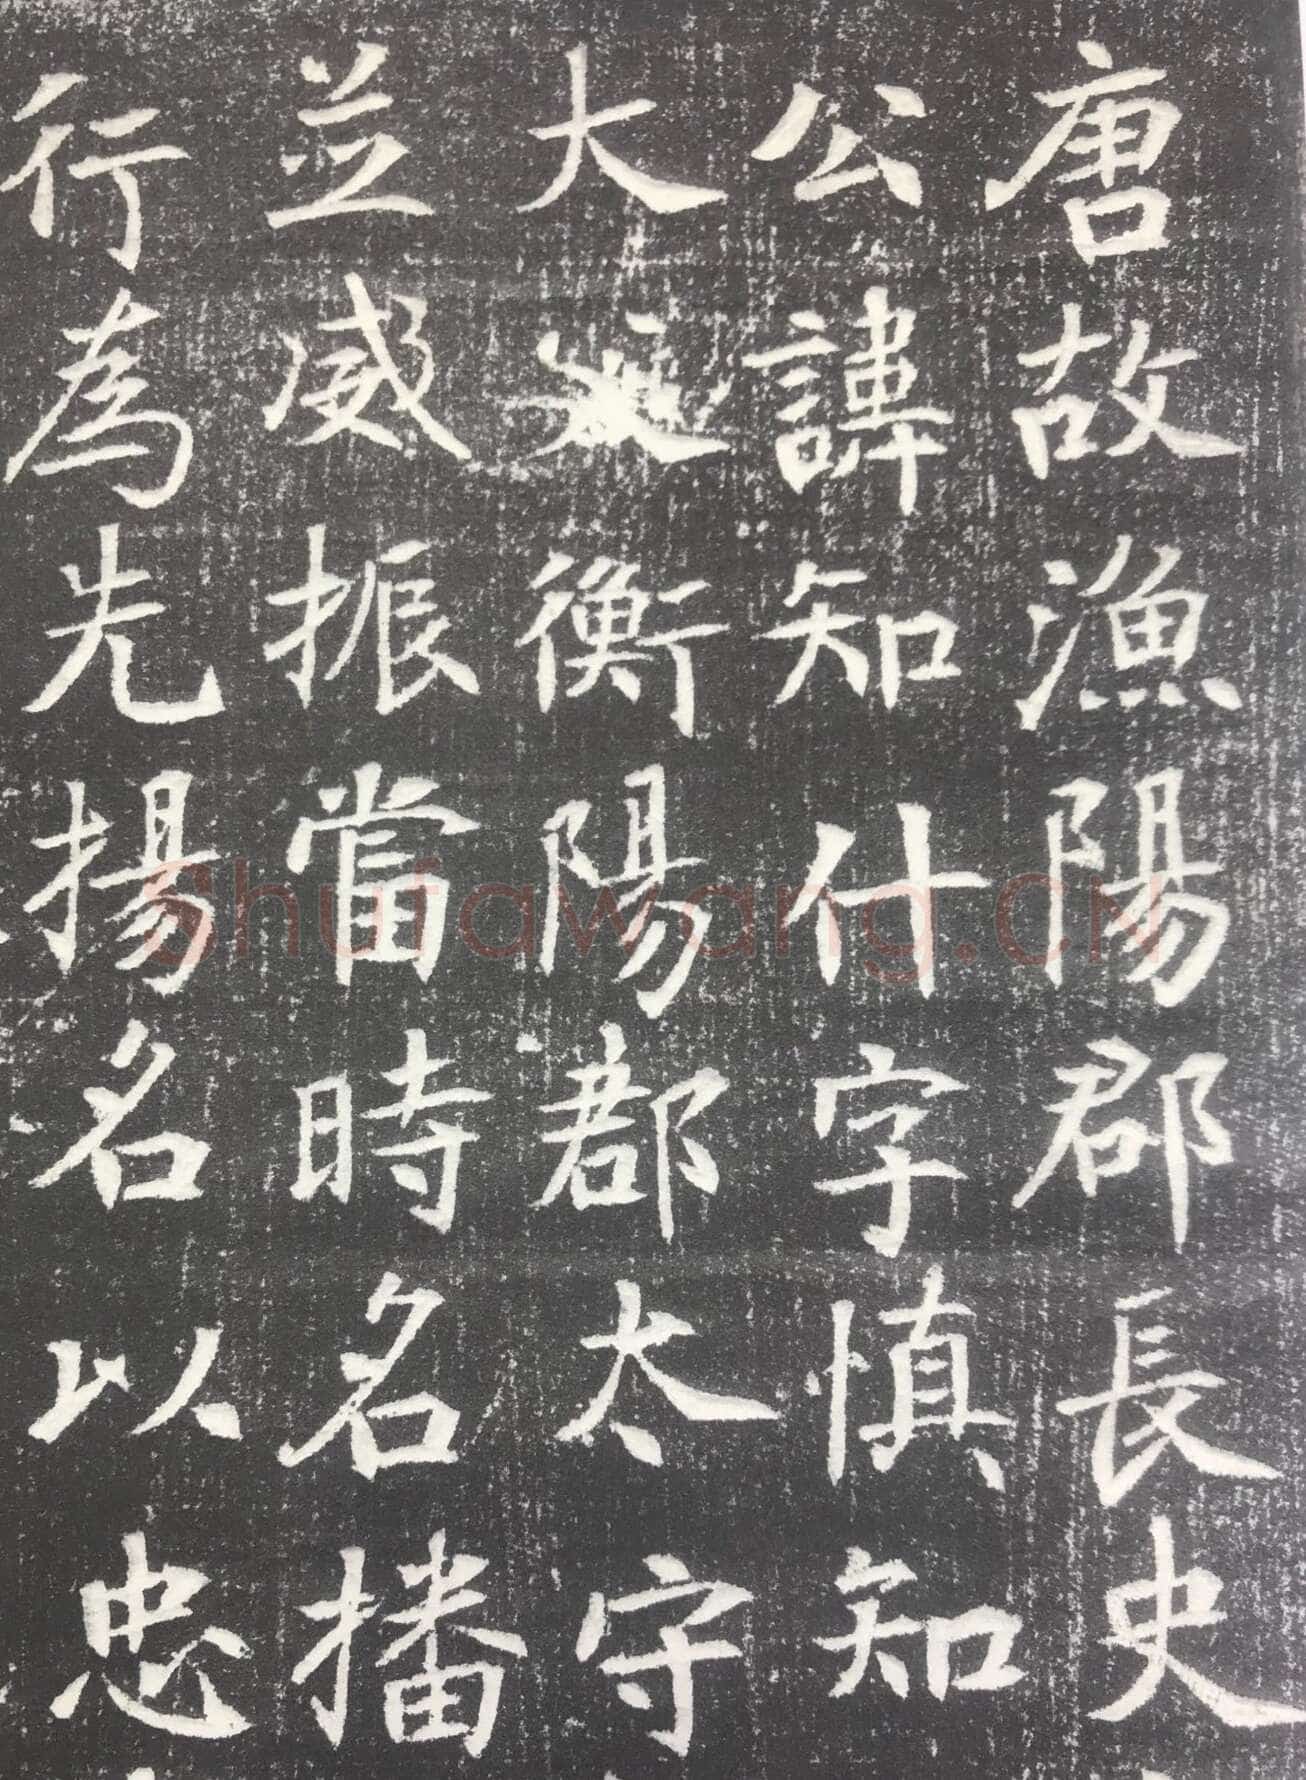 唐故漁陽郡長史
公諱知什字慎知
大父衡陽郡太守
並威振當時名播
行為先揚名以忠
Shufawang.CN